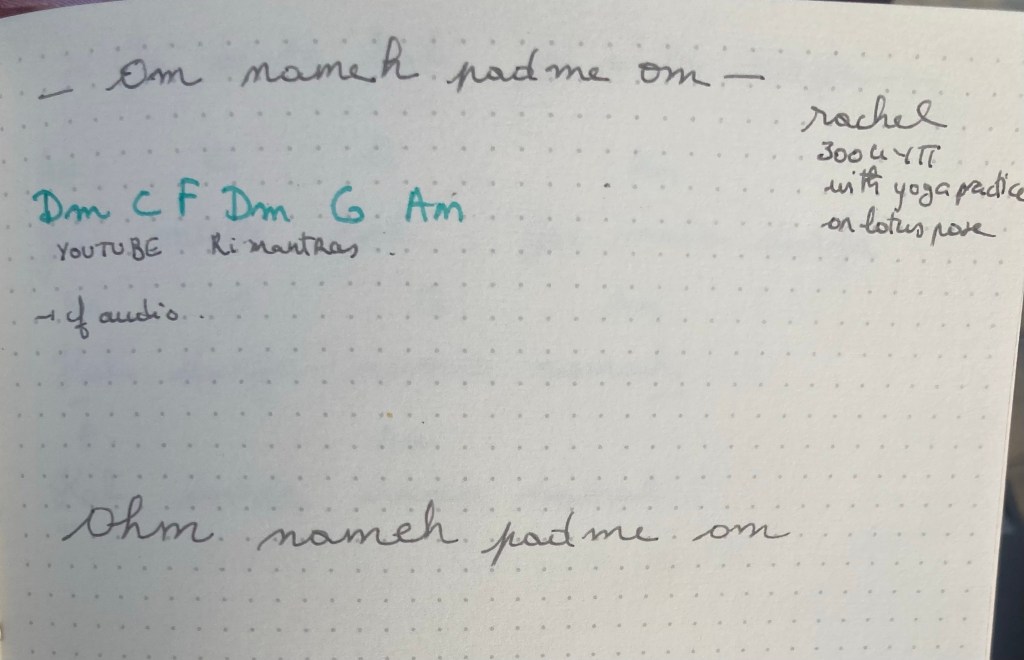 – Om nameh padme om –
rachel
300h YTT
with yoga practice
on lotus pose
Dm C F Dm G Am
YOUTUBE Ri mantras ..
→ cf audio...
Ohm nameh padme om